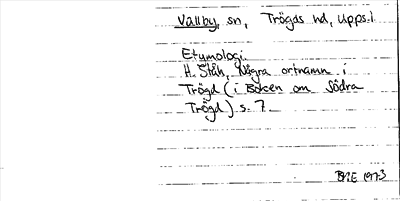 Vallby, sn, Trögds hd, Upps. l.
Etymologi.
H. Ståhl, Några ortnamn i
Trögd (i Boken om Södra
Trögd) s. 7.
1973